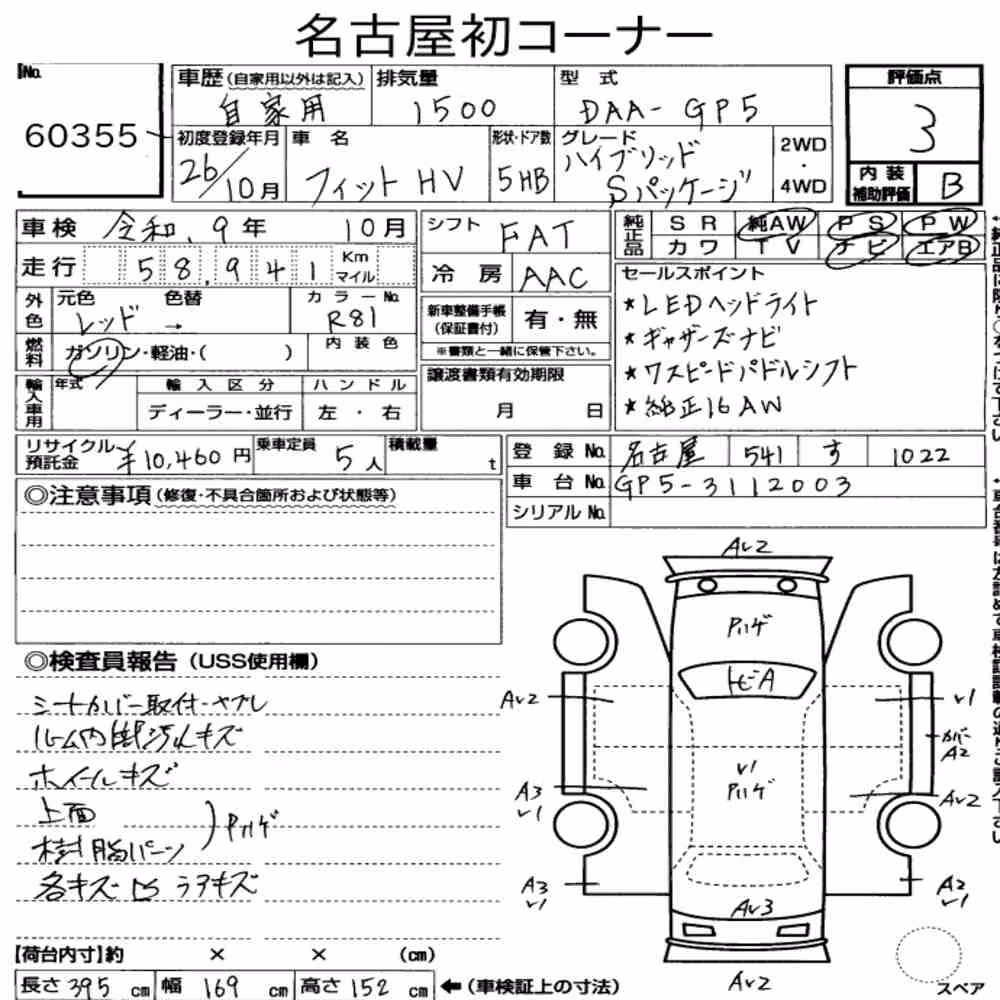 名古屋初コーナー
No.
60355
車歴(自家用以外は記入)
自家用
排気量
1500
型 式
DAA-GP5
評価点
3
初度登録年月
26/10月
車 名
フィット HV
形状・ドア数
5HB
グレード
ハイブリッド
Sパッケージ
2WD
・
4WD
内 装
補助評価
B
車検 令和、9年 10月
シフト
FAT
純正品
SR 純AW PS PW
カワ TV ナビ エアB
走行 58,941 Km
マイル
冷 房
AAC
セールスポイント
★LEDヘッドライト
★ギャザーズナビ
★ワスピードパドルシフト
★純正16AW
外色
元色 色替
レッド →
カラーNo.
R81
新車整備手帳
(保証書付)
有・無
※書類と一緒に保管下さい。
燃料
ガソリン・軽油・( )
内 装 色
輸入車用
年式
輸 入 区 分
ハ ン ド ル
ディーラー・並行
左 ・ 右
譲渡書類有効期限
月 日
リサイクル
預託金
¥10,460 円
乗車定員
5人
積載量
t
登 録 No. 名古屋 541 す 1022
車 台 No. GP5-3112003
シリアル No.
◎注意事項(修復・不具合箇所および状態等)
◎検査員報告(USS使用欄)
シートカバー取付・ヤブレ
ルーム内 汚れキズ
ホイールキズ
上面
樹脂パーツ
)Pハゲ
各キズ凹 ラアキズ
Av2
Pハゲ
トビA
Av2
v1
カバー
A2
v1
Pハゲ
A3
v1
Av2
A3
v1
A2
v1
Av3
Av2
スペア
【荷台内寸】約 × × (cm)
長さ 395 cm 幅 169 cm 高さ 152 cm ←(車検証上の寸法)